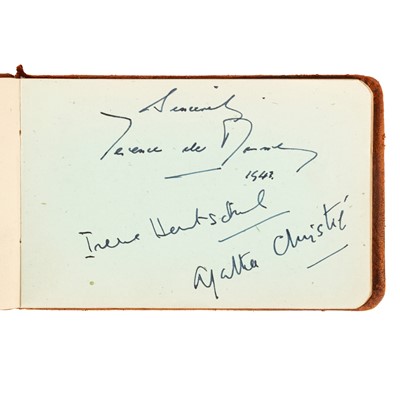 Sincerely
Terence de Marney
1943.
Irene Hentschel
Agatha Christie